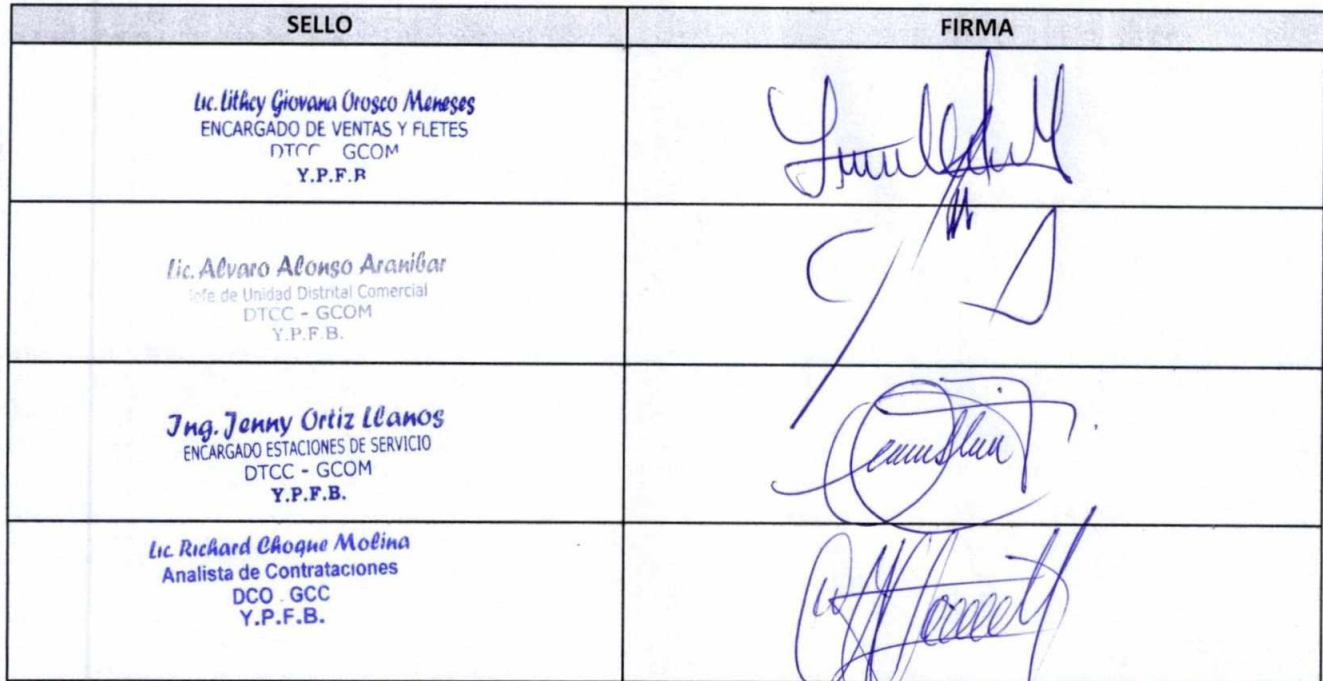 SELLO
FIRMA
Lic. Lithcy Giovana Orosco Meneses
ENCARGADO DE VENTAS Y FLETES
DTCC GCOM
Y.P.F.B
Lic. Alvaro Alonso Aranibar
Jefe de Unidad Distrital Comercial
DTCC - GCOM
Y.P.F.B.
Ing. Jenny Ortiz Llanos
ENCARGADO ESTACIONES DE SERVICIO
DTCC - GCOM
Y.P.F.B.
Lic. Richard Choque Molina
Analista de Contrataciones
DCO . GCC
Y.P.F.B.